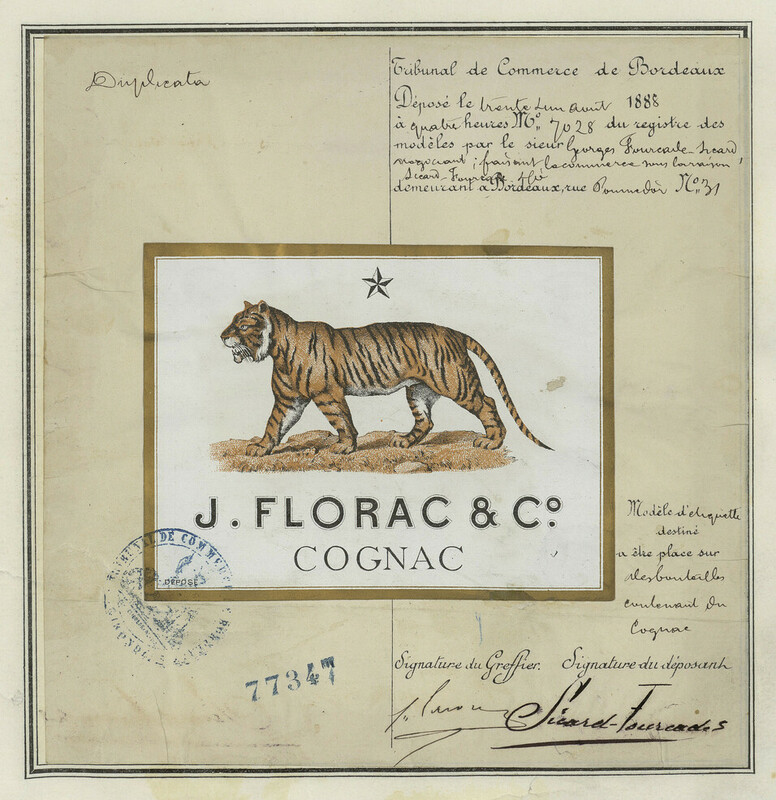 Duplicata
Tribunal de Commerce de Bordeaux
Déposé le trente un aout 1888
à quatre heures No. 7028 du registre des
modèles par le sieur Georges Fourcade-Sicard
négociant, faisant le commerce sous la raison
Sicard-Fourcade & Cie
demeurant à Bordeaux, rue Pommedor No. 31
J. FLORAC & Co.
COGNAC
DÉPOSÉ
TRIBUNAL DE COMMERCE
Modèle d'étiquette
destiné
a être place sur
des bouteilles
contenant du
Cognac
77347
Signature du Greffier. Signature du déposant
Sicard-Fourcades